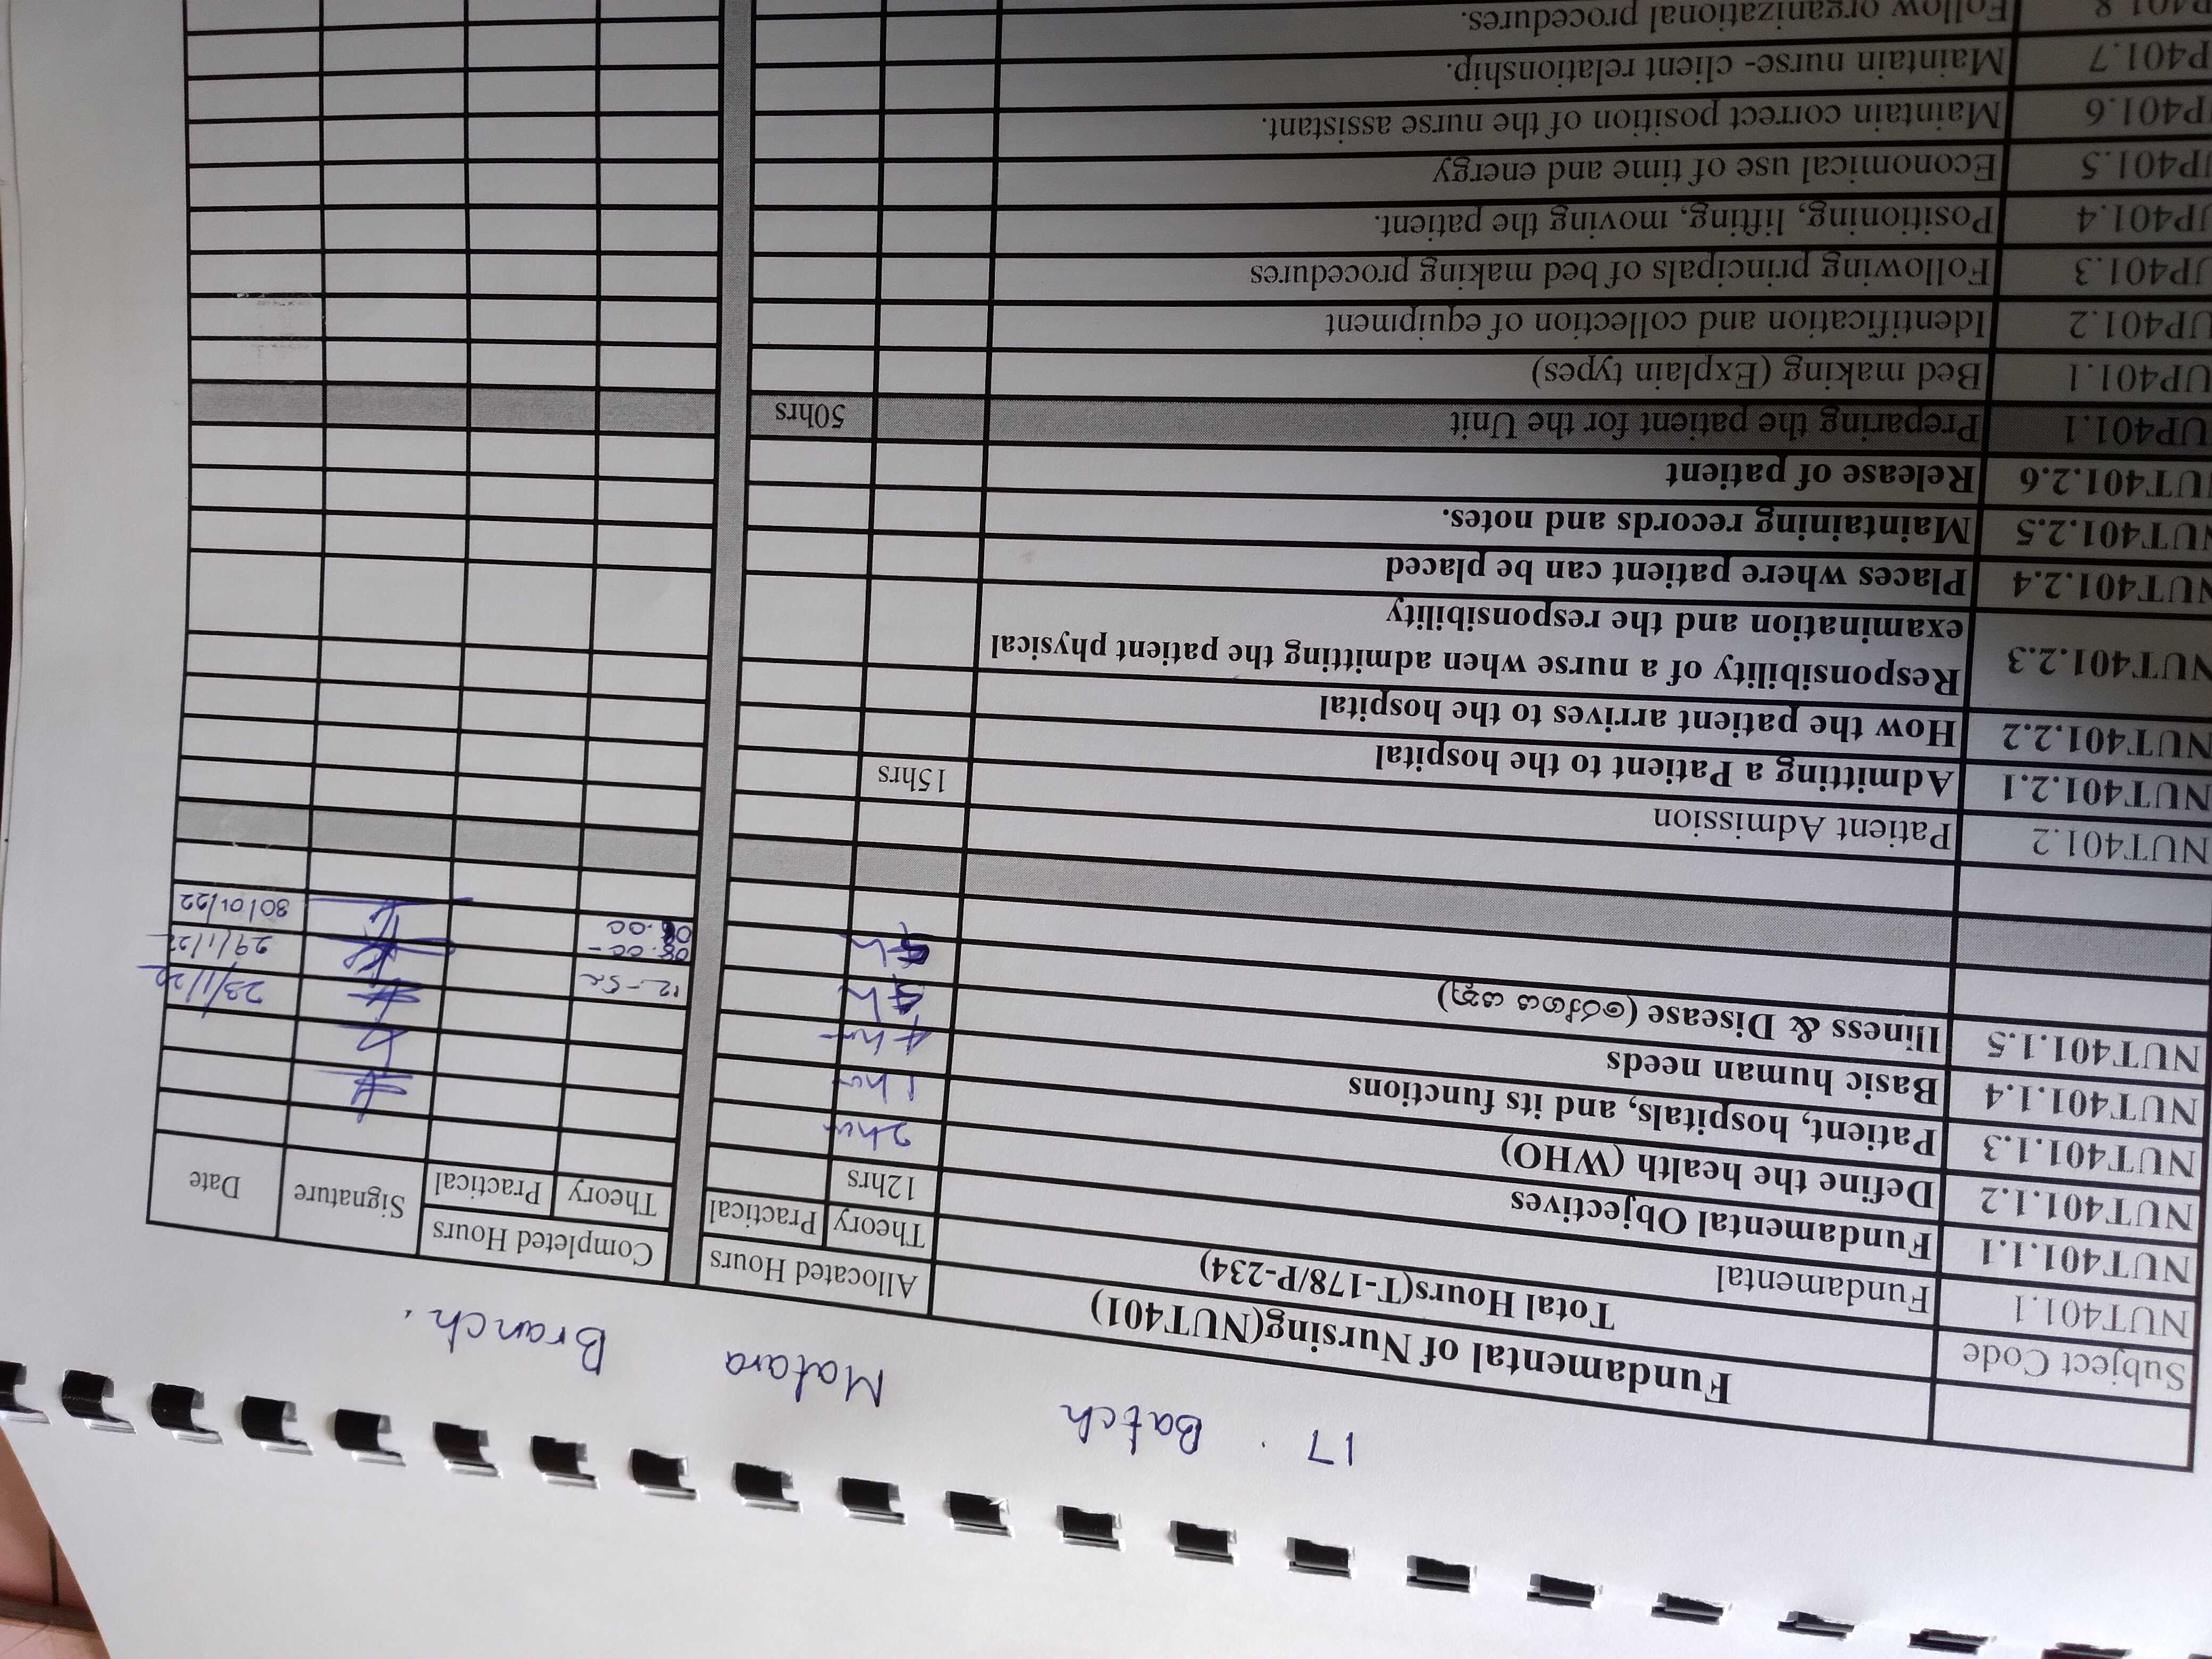 17. Batch Matara Branch.
Fundamental of Nursing(NUT401)
Total Hours(T-178/P-234)
Allocated Hours Completed Hours
Subject Code Theory Practical Theory Practical Signature Date
NUT401.1 Fundamental 12hrs
NUT401.1.1 Fundamental Objectives 2hr
NUT401.1.2 Define the health (WHO) 1 hr
NUT401.1.3 Patient, hospitals, and its functions 4 hr
NUT401.1.4 Basic human needs 12-5 23/1/22
NUT401.1.5 Iliness & Disease (රෝගය යනු) 08.00- 29/1/22
08.00 30/01/22
NUT401.2 Patient Admission
NUT401.2.1 Admitting a Patient to the hospital 15hrs
NUT401.2.2 How the patient arrives to the hospital
NUT401.2.3 Responsibility of a nurse when admitting the patient physical
examination and the responsibility
NUT401.2.4 Places where patient can be placed
NUT401.2.5 Maintaining records and notes.
UT401.2.6 Release of patient
UP401.1 Preparing the patient for the Unit 50hrs
UP401.1 Bed making (Explain types)
UP401.2 Identification and collection of equipment
UP401.3 Following principals of bed making procedures
UP401.4 Positioning, lifting, moving the patient.
UP401.5 Economical use of time and energy
P401.6 Maintain correct position of the nurse assistant.
P401.7 Maintain nurse- client relationship.
P401.8 Follow organizational procedures.